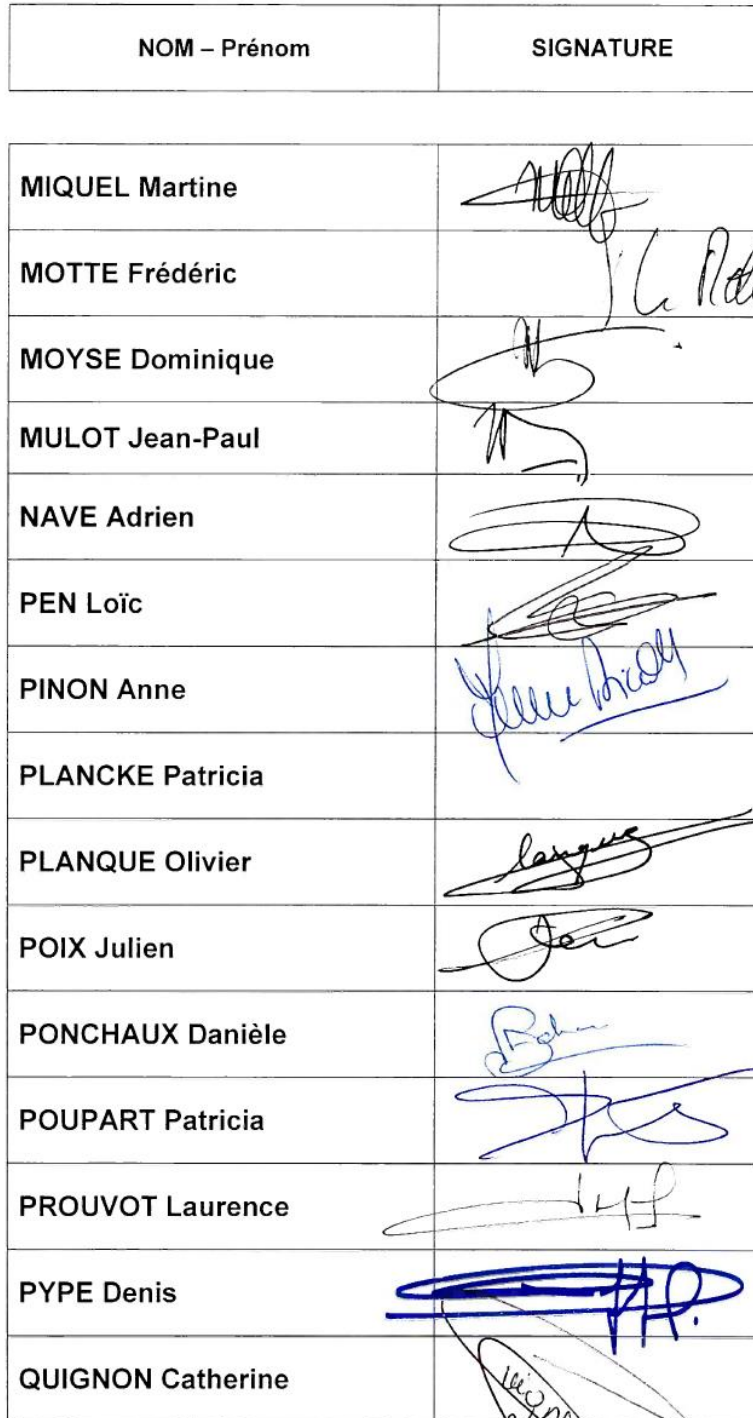 NOM – Prénom SIGNATURE
MIQUEL Martine
MOTTE Frédéric
MOYSE Dominique
MULOT Jean-Paul
NAVE Adrien
PEN Loïc
PINON Anne
PLANCKE Patricia
PLANQUE Olivier
POIX Julien
PONCHAUX Danièle
POUPART Patricia
PROUVOT Laurence
PYPE Denis
QUIGNON Catherine